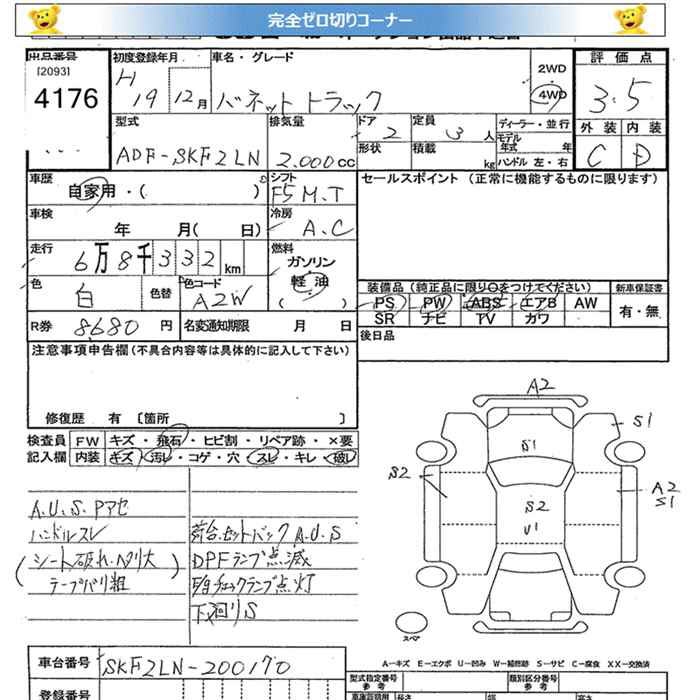 完全ゼロ切りコーナー
出品番号 初度登録年月 車名・グレード 評価点
[2093] H 2WD
4176 19 12月 バネット トラック 4WD 3.5
型式 排気量 ドア 定員 ディーラー・並行 外装 内装
ADF-SKF2LN 2.000cc 2 3人 モデル年式 年 C D
形状 積載 kg ハンドル 左・右
車歴 シフト セールスポイント (正常に機能するものに限ります)
自家用・( ) F5 M.T
車検 冷房
年 月( 日) A.C
走行 燃料
6万8千332km ガソリン
色 色替 色コード 軽油
白 A2W ( )
装備品(純正品に限り○をつけてください) 新車保証書
PS PW ABS エアB AW 有・無
SR ナビ TV カワ
R券 8680円 名変通知期限 月 日 後日品
注意事項申告欄(不具合内容等は具体的に記入して下さい)
修復歴 有 〔箇所 〕
検査員 FW キズ・飛石・ヒビ割・リペア跡・×要
記入欄 内装 キズ・汚レ・コゲ・穴・スレ・キレ・破レ
A2
S1
S1
S2 A2
S1
S2
U1
A.U.S.Pアセ
ハンドルスレ 荷台.セットバック A.U.S
(シート破れ.ヘタリ大 DPFランプ点滅
テープバリ粗) チェックランプ点灯
下廻りS
スペア
A—キズ E—エクボ U—凹み W—補修跡 S—サビ C—腐食 XX—交換済
車台番号 SKF2LN-200170
型式指定番号 参考 類別区分番号 参考
登録番号 長さ 幅 高さ